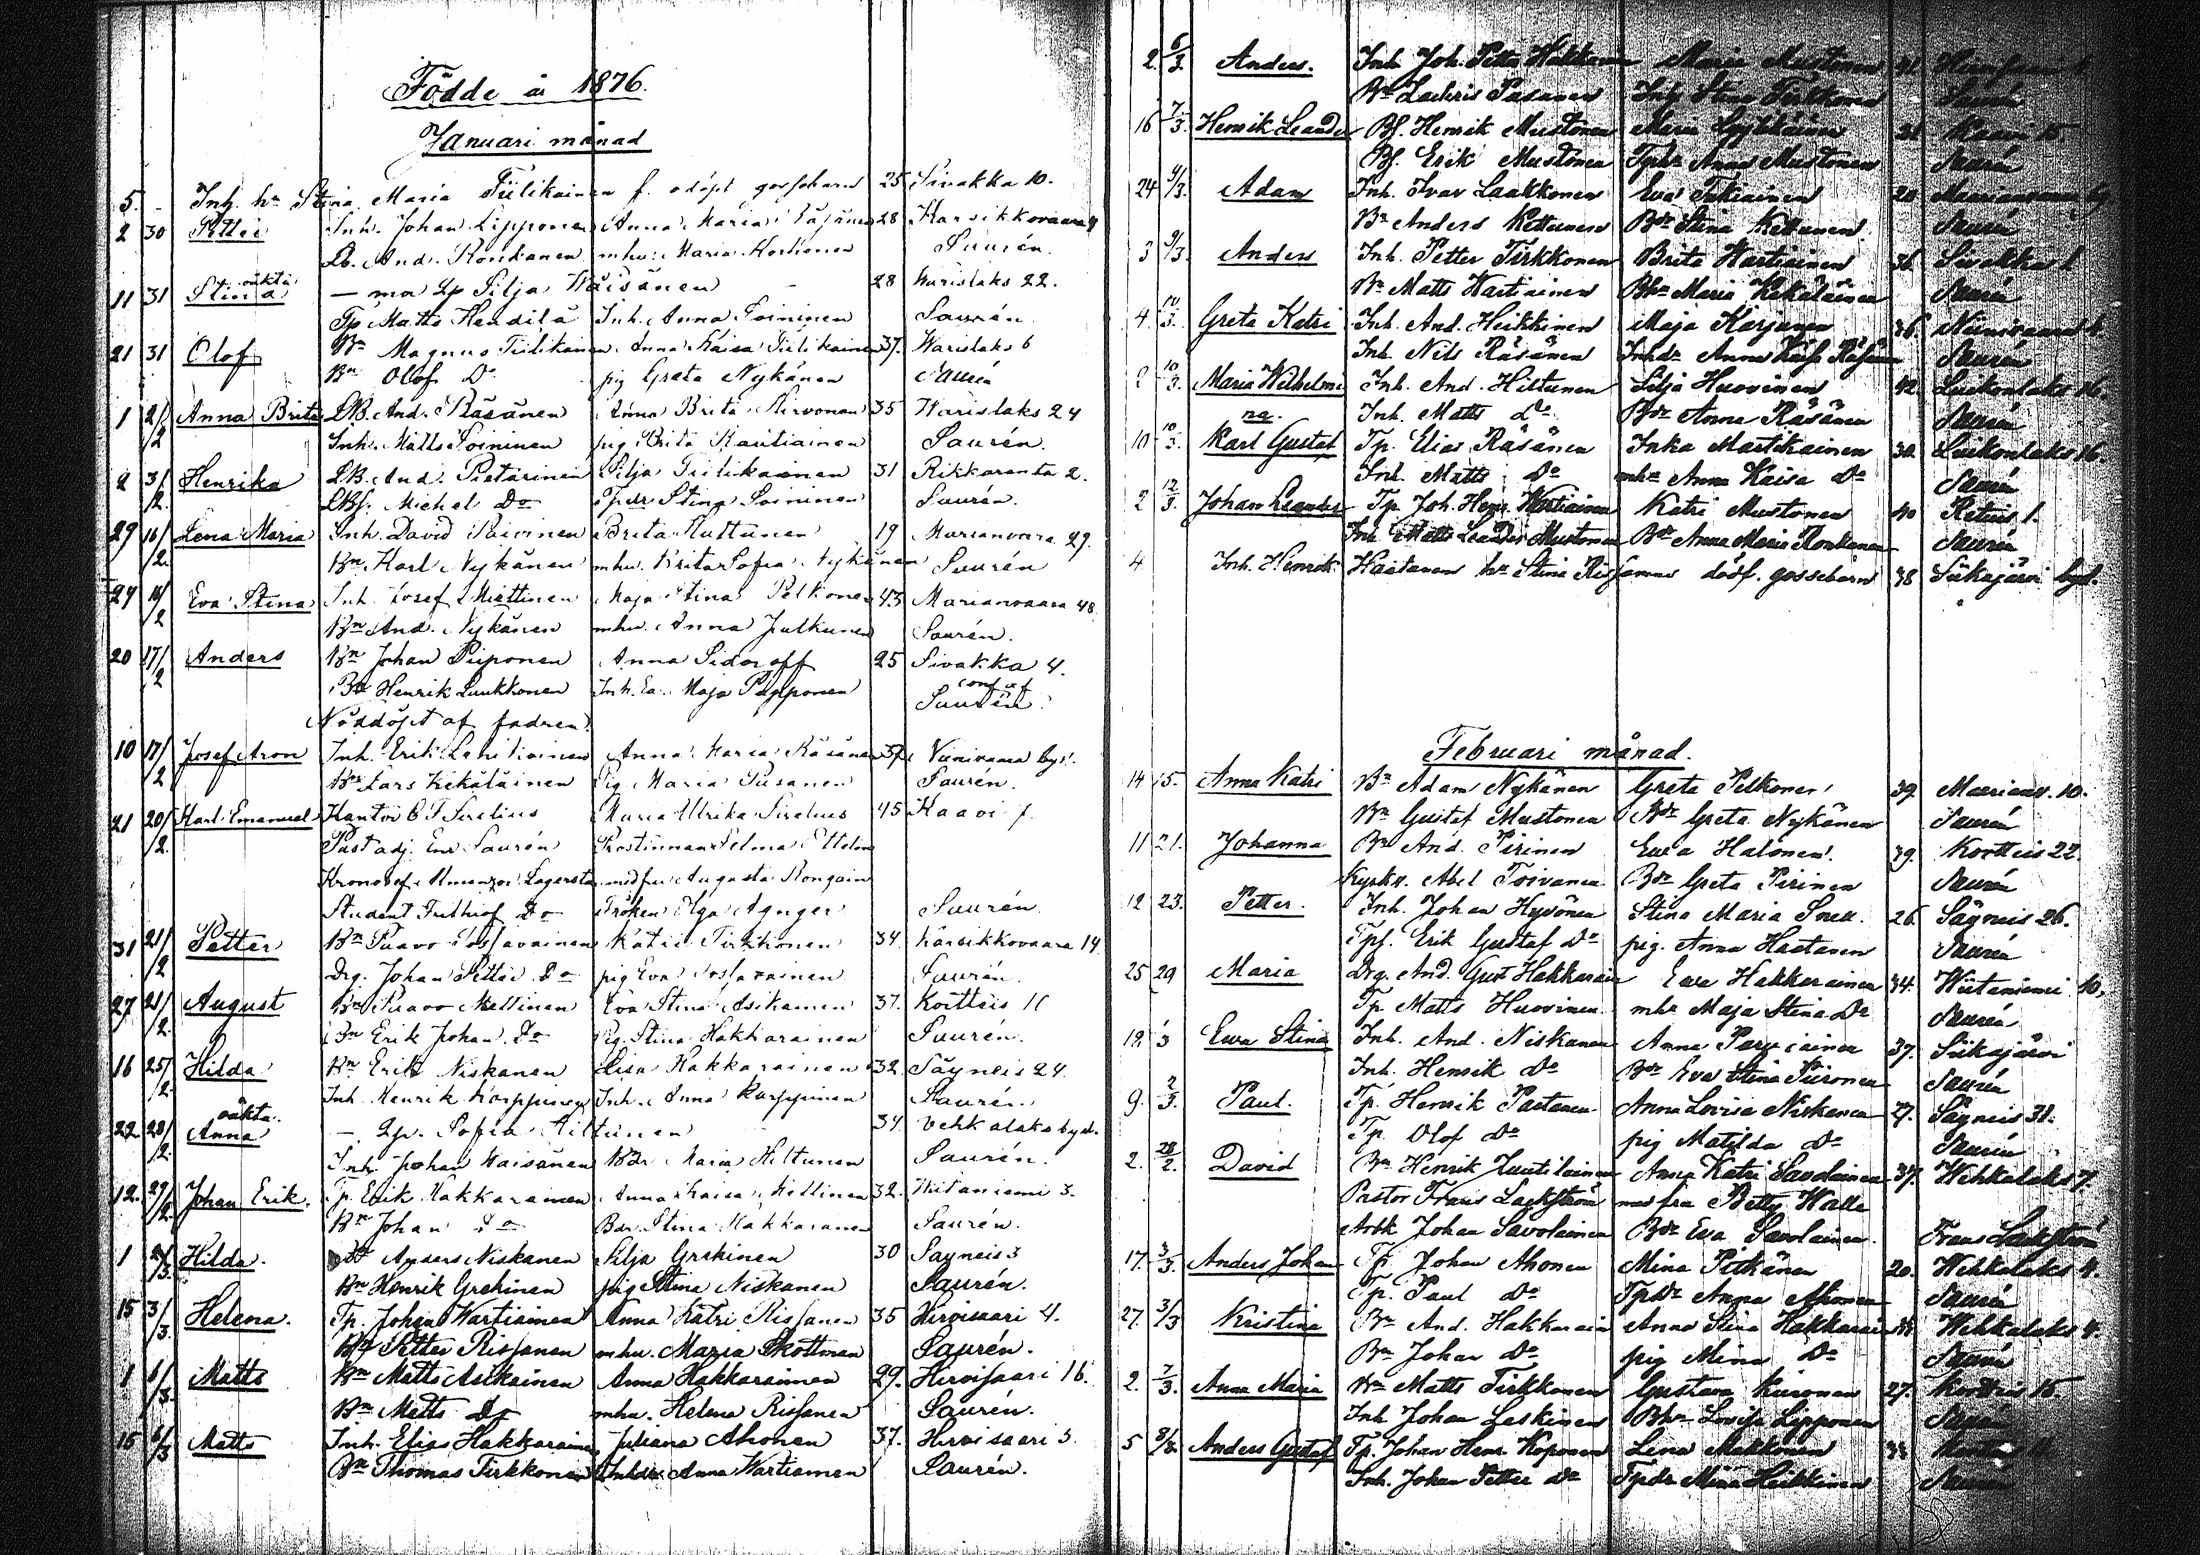 Födde år 1876.
Januari månad
5. - Inh. hr Stina Maria Tiilikainen f. odöpt gossebarn 25 Sivakka 10.
2 30 Petter Inh. Johan Lipponen Anna Maria Räsänen 28 Karsikkovaara 9
And. Ronkanen mhu. Maria Saurén.
11 31 oäkta Stina — mor Silja Wäisänen - 28 Warislaks 22.
Tp Matts Inh. Anna Toininen Saurén
21 31 Olof Bn Magnus Tiilikainen Anna Kaisa Tiilikainen 37. Warislaks 6
Bn Olof Do pig Greta Nykänen Saurén
1 2/2 Anna Brita LB. And. Räsänen Anna Brita Hirvonen 35 Warislaks 24
Inh. Matts Toininen pig Brita Rautiainen Saurén.
2 3/2 Henrika LB. And. Pietarinen Silja Tiilikainen 31 Rikkaranta 2.
LBs. Michel Do Tpdr Stina Toininen Saurén.
29 16/2 Lena Maria Inh. David Päivinen Brita Huttunen 19 Marianvaara 29.
Bn Karl Nykänen mhu. Brita Sofia Nykänen Saurén
24 16/2 Eva Stina Inh. Josef Miettinen Maja Stina Pelkonen 43 Marianvaara 48.
Bn And. Nykänen mhu. Anna Julkunen Saurén.
20 17/2 Anders Bn Johan Piiponen Anna Sidoroff 25 Sivakka 4.
Bn Henrik Luukkonen Inh. Maja conf af Saurén.
Nöddöpt af fadren.
10 17/2 Josef Aron Inh. Erik Anna Maria Räsänen 37 Niinivaara
Bn Lars Kekäläinen Pig Maria Pusanen Saurén.
21 20/2 Karl Emanuel Kantor C F Sirelius Maria Ulrika Sirelius 45 Kaavi
Past. adj. Saurén Prostinnan Selma
Augusta
Student Frithiof Do Fröken Olga Saurén.
31 21/2 Petter Bn Paavo Katri Tirkkonen 34. Karsikkovaara 14
Drg. Johan Petter Do pig Eva Saurén.
27 21/2 August Bn Paavo Mettinen Eva Stina Asikainen 37. Kortteis 11
Bn Erik Johan Do Pig. Stina Hakkarainen Saurén.
16 25/2 Hilda Bn Erik Niskanen Lisa Hakkarainen 32. Säyneis 24.
Inh. Henrik Korppinen Inh. Anna Korppinen Saurén.
22 28/2 oäkta Anna — Sofia Hiltunen 34. Vehkalaks
Inh Johan Waisänen Bdr Maria Hiltunen Saurén.
12. 29/2 Johan Erik. Tp. Erik Hakkarainen Anna Kaisa Mettinen 32. Wiitaniemi 3.
Bn Johan Do Bdr. Stina Hakkarainen Saurén.
1 2/3. Hilda. Anders Niskanen Silja 30 Säyneis 3
Bn Henrik pig Stina Niskanen Saurén.
15 3/3. Helena. Tp. Johan Wartiainen Anna Katri Rissanen 35 Hirvisaari 4.
Petter Rissanen mhu. Maria Skottman Saurén.
1 6/3. Matts Bn Matts Asikainen Anna Hakkarainen 29. Hirvisaari 16.
Bn Matts Do mhu. Helena Rissanen Saurén.
15 6/3 Matts Inh. Elias Hakkarainen Juliana Ahonen 37. Hirvisaari 3.
Bn Thomas Tirkkonen Inhdr Anna Wartiainen Saurén.
2. 6/3. Anders. Inh. Joh. Petter Hakkarainen Maria Mustonen
Bn Zachris Pasanen Inh Stina Tirkkonen Saurén
16 7/3. Henrik Leander Bs. Henrik Mustonen Maria Kaavi 15
Bs. Erik Mustonen Tpdr Anna Mustonen Saurén
24 9/3. Adam Inh. Ivar Laakkonen Eva Tukiainen 20 Marianvaara
Bn Anders Kettunen Bdr Stina Kettunen. Saurén
3 9/3. Anders Inh. Petter Tirkkonen Brita Wartiainen 36. Sivakka 1
Bn Matts Wartiainen Bhr Maria Kekäläinen Saurén
4. 10/3. Greta Katri Inh. And. Heikkinen Maja Karjanen 36. Niinivaara
Inh. Nils Räsänen Inhdr Anna Kaisa Räsänen Saurén
2 10/3. Maria Wilhelmina. Inh. And. Hiltunen Silja Huovinen 42. Luikonlaks 16.
Inh. Matts Do Bdr Anna Räsänen Saurén
10 10/3. Karl Gustaf Tp. Elias Räsänen Inka Martikainen 30. Luikonlaks 16.
Inh. Matts Do mhr Anna Kaisa Do Saurén
2 12/3. Johan Leander Tp. Joh. Henr. Wartiainen Katri Mustonen 40 Retuis 1.
Inh Matts Leander Mustonen Bdr Anna Maria Ronkanen Saurén
4 Inh. Henrik Hartanen hr Stina Rissanens dödf. gossebarn 38 Siikajärvi
Februari månad.
14 15. Anna Katri Bn Adam Nykänen Greta Pelkonen 39. Marianv. 10.
Bn Gustaf Mustonen Bdr Greta Nykänen Saurén
11 21. Johanna Bn And. Pirinen Ewa Halonen. 39. Kortteis 22.
Kyrkv. Abel Toivanen Bdr Greta Pirinen Saurén
12 23. Petter. Inh. Johan Hyvönen Stina Maria 26. Säyneis 26.
Tps. Erik Gustaf Do pig. Anna Hartanen Saurén
25 29 Maria Drg. And. Gust Hakkarainen Ewa Hakkarainen 34. Wiitaniemi 10.
Tp. Matts Huovinen. mhr Maja Stina Do Saurén
12 Ewa Stina Inh. And. Niskanen Anna 37. Siikajärvi
Inh. Henrik Do Bdr Eva Stina Piironen Saurén
9. 2/3. Paul. Tp. Henrik Partanen Anna Lovisa Niskanen 27. Säyneis 31.
Tp. Olof Do pig Matilda Do Saurén
2. 28/2. David Bn Henrik Juutilainen Anna Katri Savolainen 37. Wehkalaks 7.
Pastor Frans Lackström Betty Walle
Johan Savolainen Bdr Eva Savolainen. Frans Lackström
17. 3/3. Anders Johan Tp. Johan Ahonen Mina Pitkänen 20. Wehkalaks 4.
Tp. Paul Do Tpdr Anna Ahonen Saurén
27. 3/3 Kristina Bn And. Hakkarainen Anna Stina Hakkarainen Wehkalaks 4.
Bn Johan Do pig Mina Do Saurén
2. 7/3. Anna Maria Bn Matts Tirkkonen Gustava Kuronen 27. Kortteis 15.
Inh. Johan Leskinen Bhr Lovisa Lipponen Saurén
5 8/3. Anders Gustaf Tp. Johan Henr. Koponen Lena Makkonen
Inh. Johan Petter Do Tpdr Mina Heikkinen Saurén